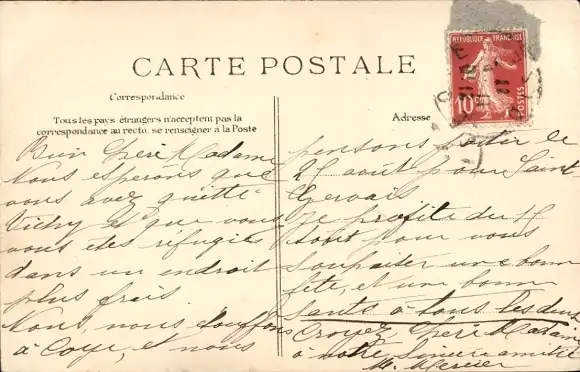 CARTE POSTALE
Correspondance
Tous les pays étrangers n'acceptent pas la
correspondance au recto, se renseigner à la Poste
Adresse
REPUBLIQUE FRANÇAISE
10
POSTES
Bien Chère Madame
Nous esperons que
vous avez quitté
Vichy et que vous
vous etes réfugiés
dans un endroit
plus frais.
Nous, nous étouffons
à Coye, et nous
pensons partir le
25 août pour Saint
Gervais
Je profite du 15
août pour vous
souhaiter une bonne
fête, et une bonne
santé à tous les deux
Croyez, Chère Madame
à notre sincère amitié
M. Mercier